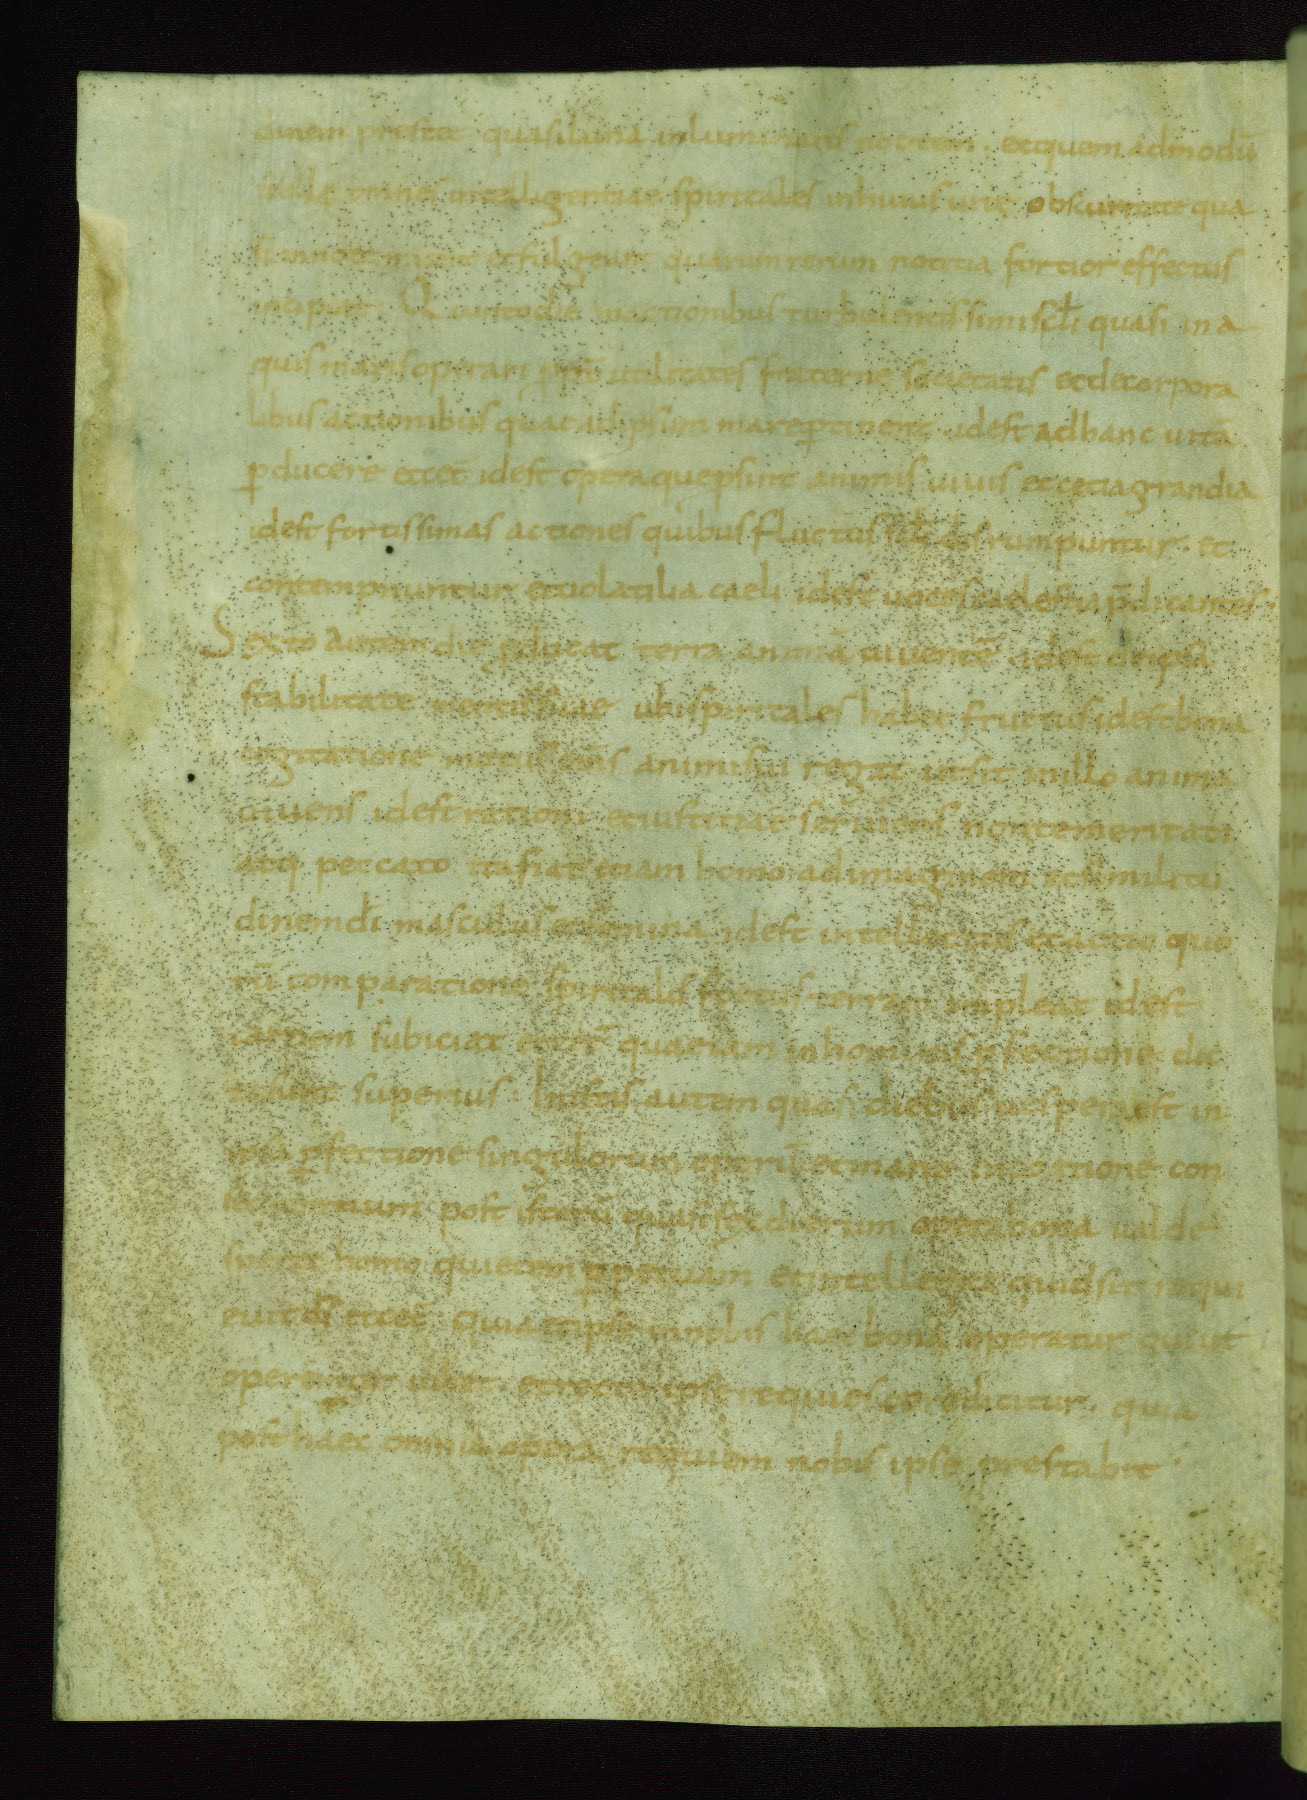 dinem prestet quasi luna inluminans noctem. et quem admodū
stelle omnes intelligentiae spiritales in huius uitę obscuritate qua
si in nocte micent et fulgeant quarum rerum notitia fortior effectus
incipiat. Quinto die in actionibus turbulentissimi scl̄i quasi in a
quis maris operari utilitates fraterne societatis et de corpora
libus actionibus quae ad ipsum mare ꝑtinent. id est ad hanc uitā
ꝓducere et cet̄ id est opera quę ꝓsint animis uiuis et cetia grandia
id est fortissimas actiones quibus fluctus scl̄i disrumpuntur. et
contempnuntur et uolatilia caeli id est uoces caelestia p̄dicantes.
Sexto autem die ꝓducat terra animā uiuentē id est de ipsa
stabilitate mentis suae ubi spiritales habet fructus id est bona
cogitatione motus om̄s animi sui regat ut sit in illo anima
uiuens id est rationi et iustitiae seruiens non temeritati
atq; peccato ita fiat etiam homo ad imaginem et similitu
dinem dī masculus et femina. id est intellectus et actio quo
rū comparatione spiritalis foetus terram impleat id est
carnem subiciat et cet̄ quae iam in hominis ꝑfectione dic
ta sunt superius. In istis autem quasi diebus uespera est in
ipsa ꝑfectione singulorum operū et mane in coatione con
sequentium post istorū quasi sex dierum opera bona ualde
speret homo quietem ꝑpetuam et intellegat quid sit requi
euit ds̄ et cet̄. Quia et ipse in nobis haec bona operatur qui ut
operemur iubet. et recte ipse requiescere dicitur. quia
post haec omnia opera requiem nobis ipse prestabit.